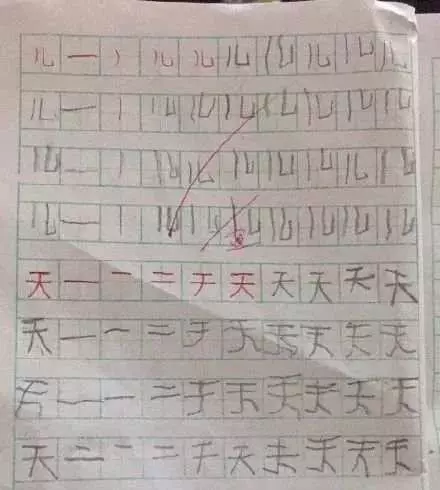 儿 一 丿 儿 儿 儿 儿 儿 儿 儿
儿 一 丨 儿 儿 儿 儿 儿 儿 儿
儿 一 丨 儿 儿 儿 儿 儿 儿 儿
儿 一 丨 儿 儿 儿 儿 儿 儿
天 一 一 二 天 天 天 天 天
天 一 一 二 天 天 天 天 天
天 一 一 二 天 天 天 天 天
天 二 一 二 天 天 天 天 天